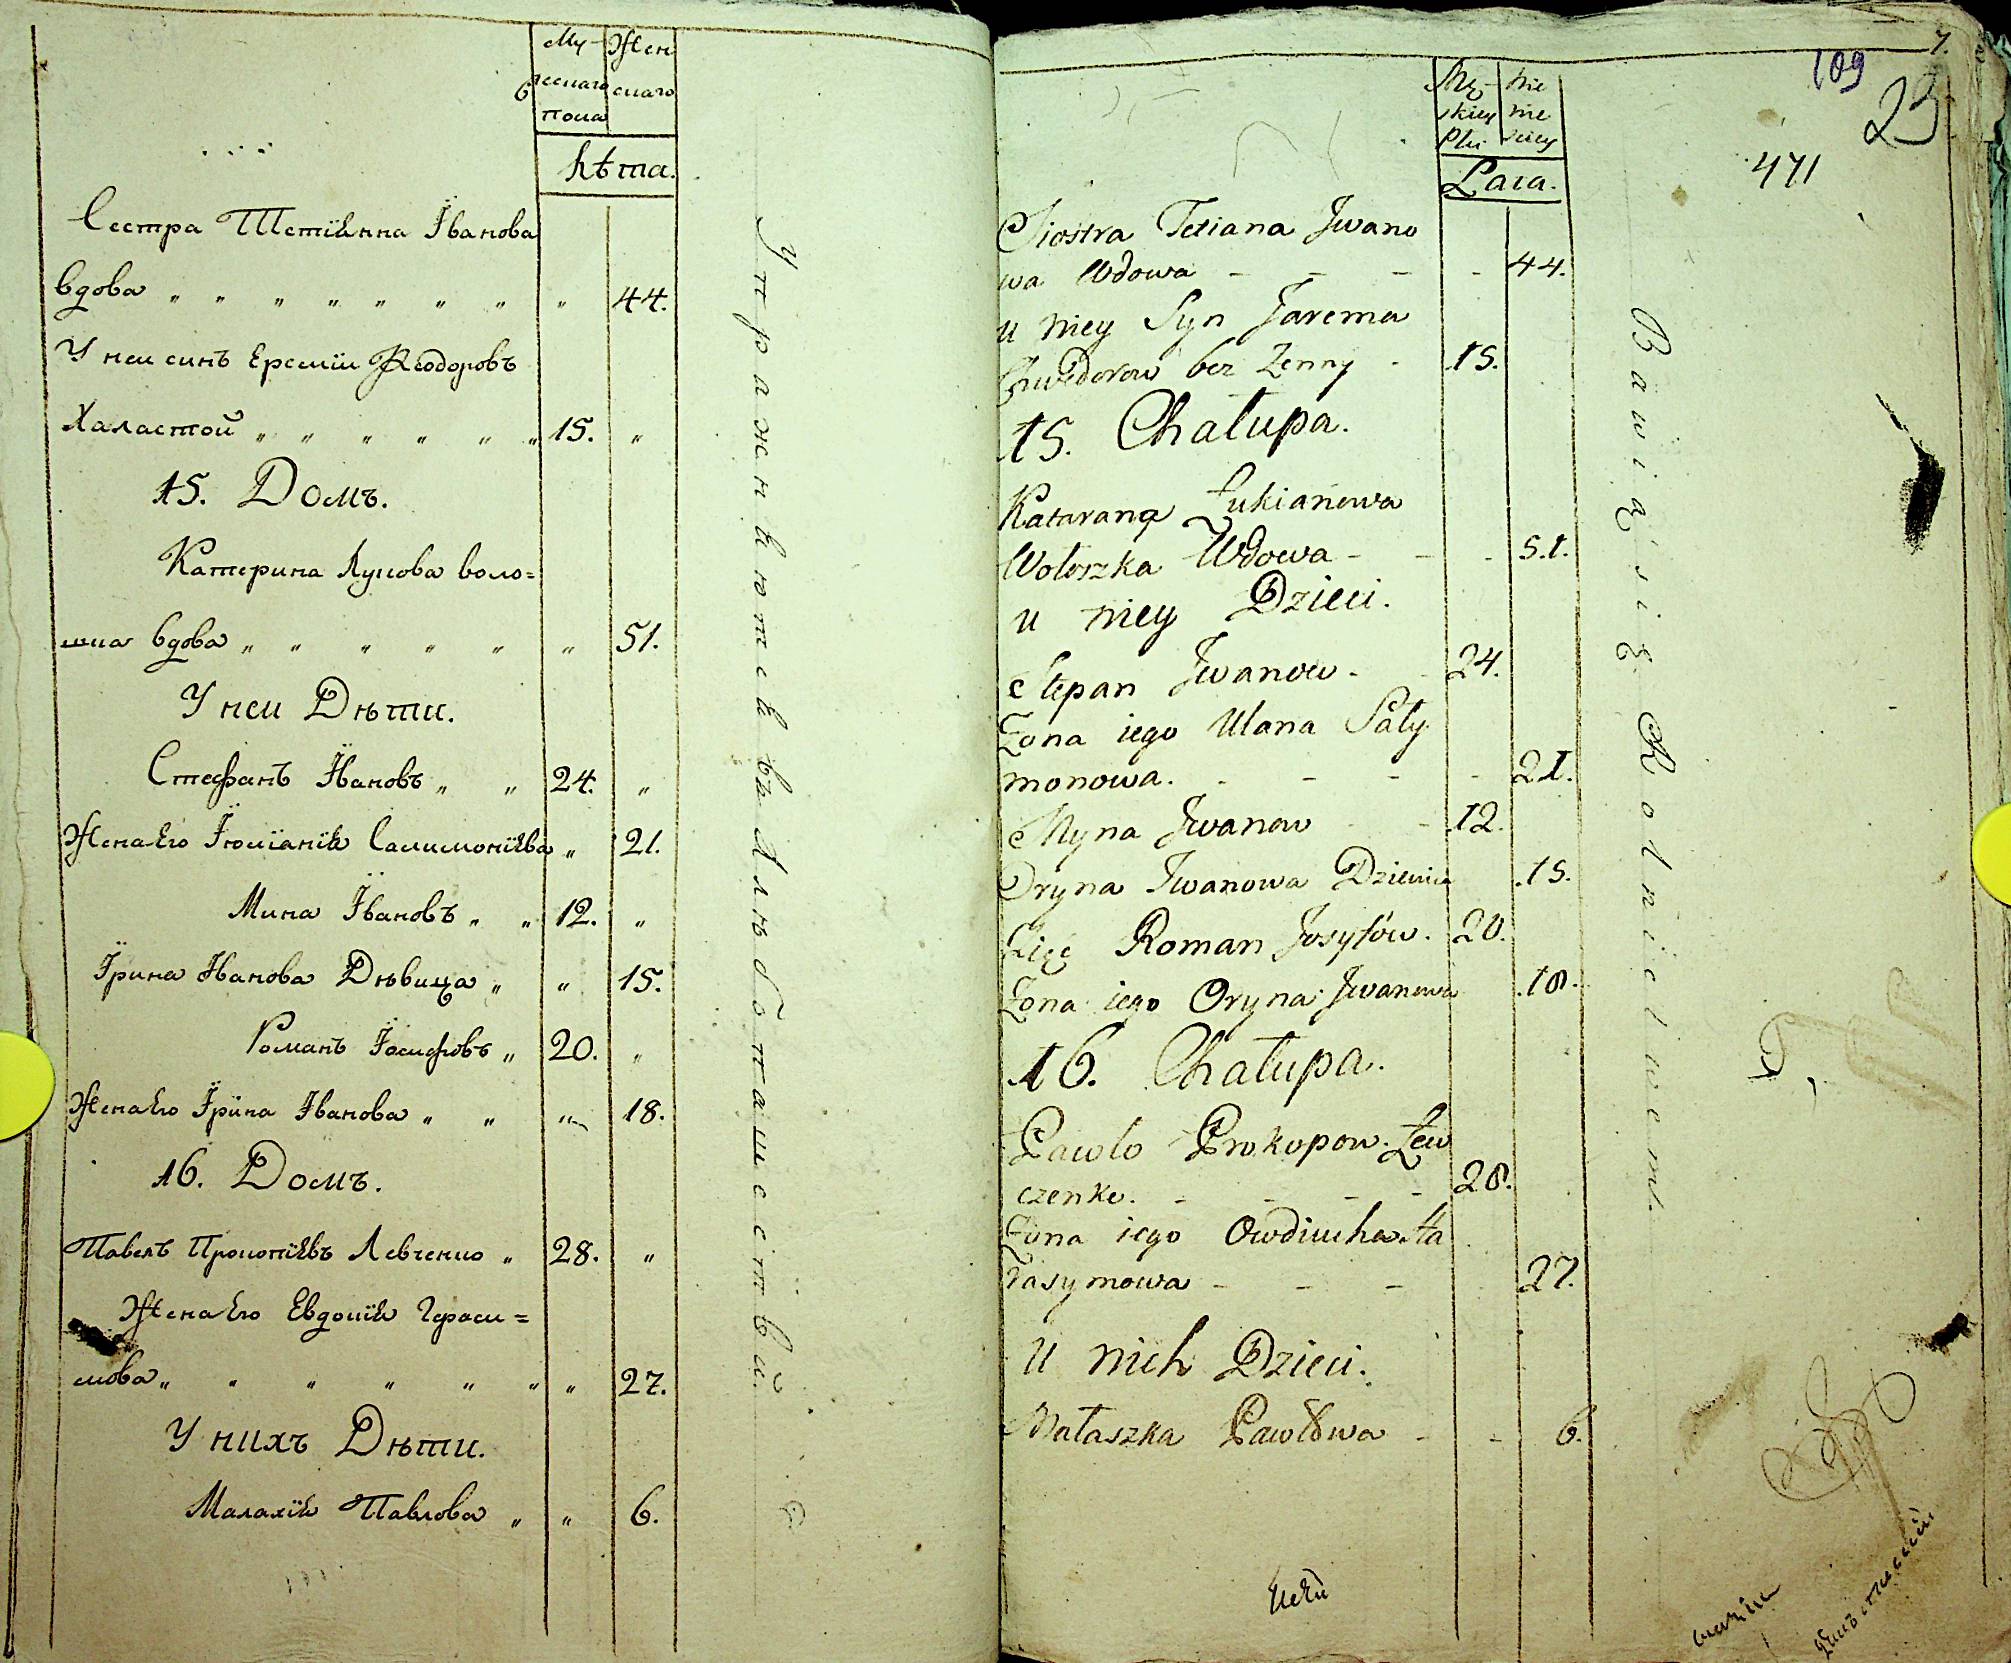 Му- Жен
жескаго скаго
пола
лѣта.
Сестра Тетіянна Іванова
вдова „ „ „ „ „ „ „ „ 44.
У неи синъ Еремѣи Ѳеодоровъ
Халастой „ „ „ „ „ „ 15. „
15. Домъ.
Катерина Лукова воло=
шка вдова „ „ „ „ „ „ 51.
У неи Дѣти.
Стефанъ Івановъ „ „ 24. „
Жена Его Іюліанія Салимонѣва „ 21.
Мина Івановъ „ „ 12. „
Ірина Иванова Дѣвица „ „ 15.
Романъ Іосифовъ „ 20. „
Жена Его Ірина Иванова „ „ „ 18.
16. Домъ.
Павелъ Прокопіевъ Левченко „ 28. „
Жена Его Евдокія Гераси=
мова „ „ „ „ „ „ „ 27.
У нихъ Дѣти.
Малахія Павлова „ „ 6.
Упражняются въ хлѣбопашествѣ
7.
109
23
471
Mę- nie
skiey nie
Płci
Lata.
Siostra Tetiana Jwano
wa Wdowa - - - - 44.
u niey Syn Jarema
Chwedorow bez Zenny - 15.
15. Chałupa.
Kataryna Łukianowa
Wołoszka Wdowa - - - 51.
u niey Dzieci.
Stepan Jwanow - - 24.
Zona iego Ulana Sały
monowa. - - - - 21.
Myna Jwanow - - 12.
Oryna Jwanowa Dziewica 15.
Zięć Roman Josyfów. 20.
Zona iego Oryna Jwanowa 18.
16. Chałupa.
Pawło Prokopow Lew
czenko. - - - - 28.
Zona iego Owdiucha Ha
rasymowa - - - 27.
U nich Dzieci.
Małaszka Pawłowa - - 6.
Bawią się Rolnictwem.